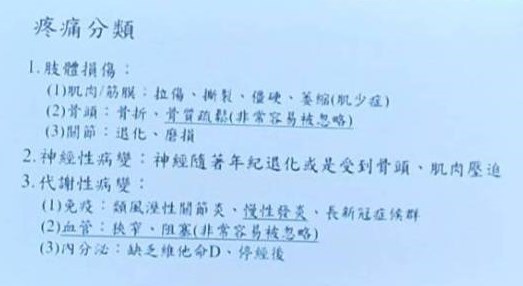 疼痛分類
1.肢體損傷：
(1)肌肉/筋膜：拉傷、撕裂、僵硬、萎縮(肌少症)
(2)骨頭：骨折、骨質疏鬆(非常容易被忽略)
(3)關節：退化、磨損
2.神經性病變：神經隨著年紀退化或是受到骨頭、肌肉壓迫
3.代謝性病變：
(1)免疫：類風溼性關節炎、慢性發炎、長新冠症候群
(2)血管：狹窄、阻塞(非常容易被忽略)
(3)內分泌：缺乏維他命D、停經後